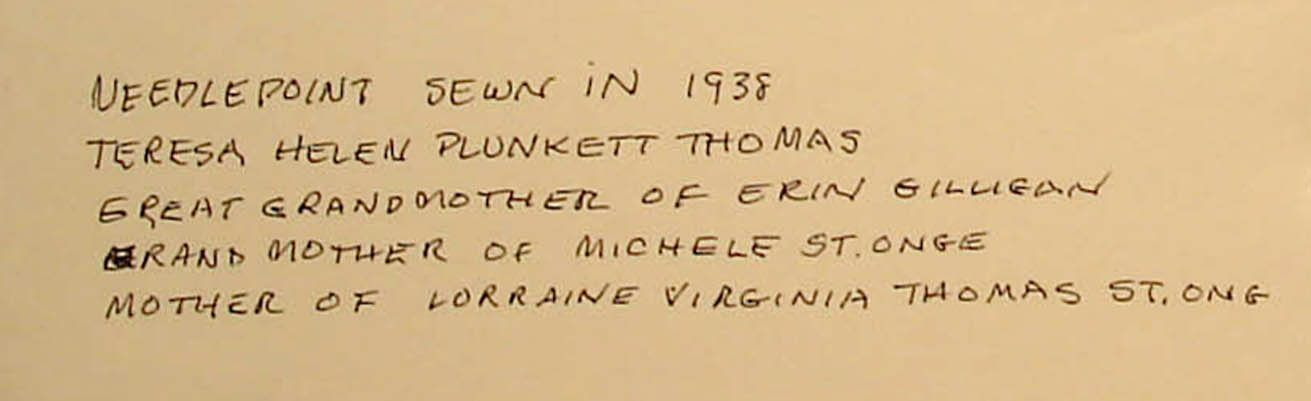 NEEDLEPOINT SEWN IN 1938
TERESA HELEN PLUNKETT THOMAS
GREAT GRANDMOTHER OF ERIN GILLIGAN
GRAND MOTHER OF MICHELE ST. ONGE
MOTHER OF LORRAINE VIRGINIA THOMAS ST. ONG